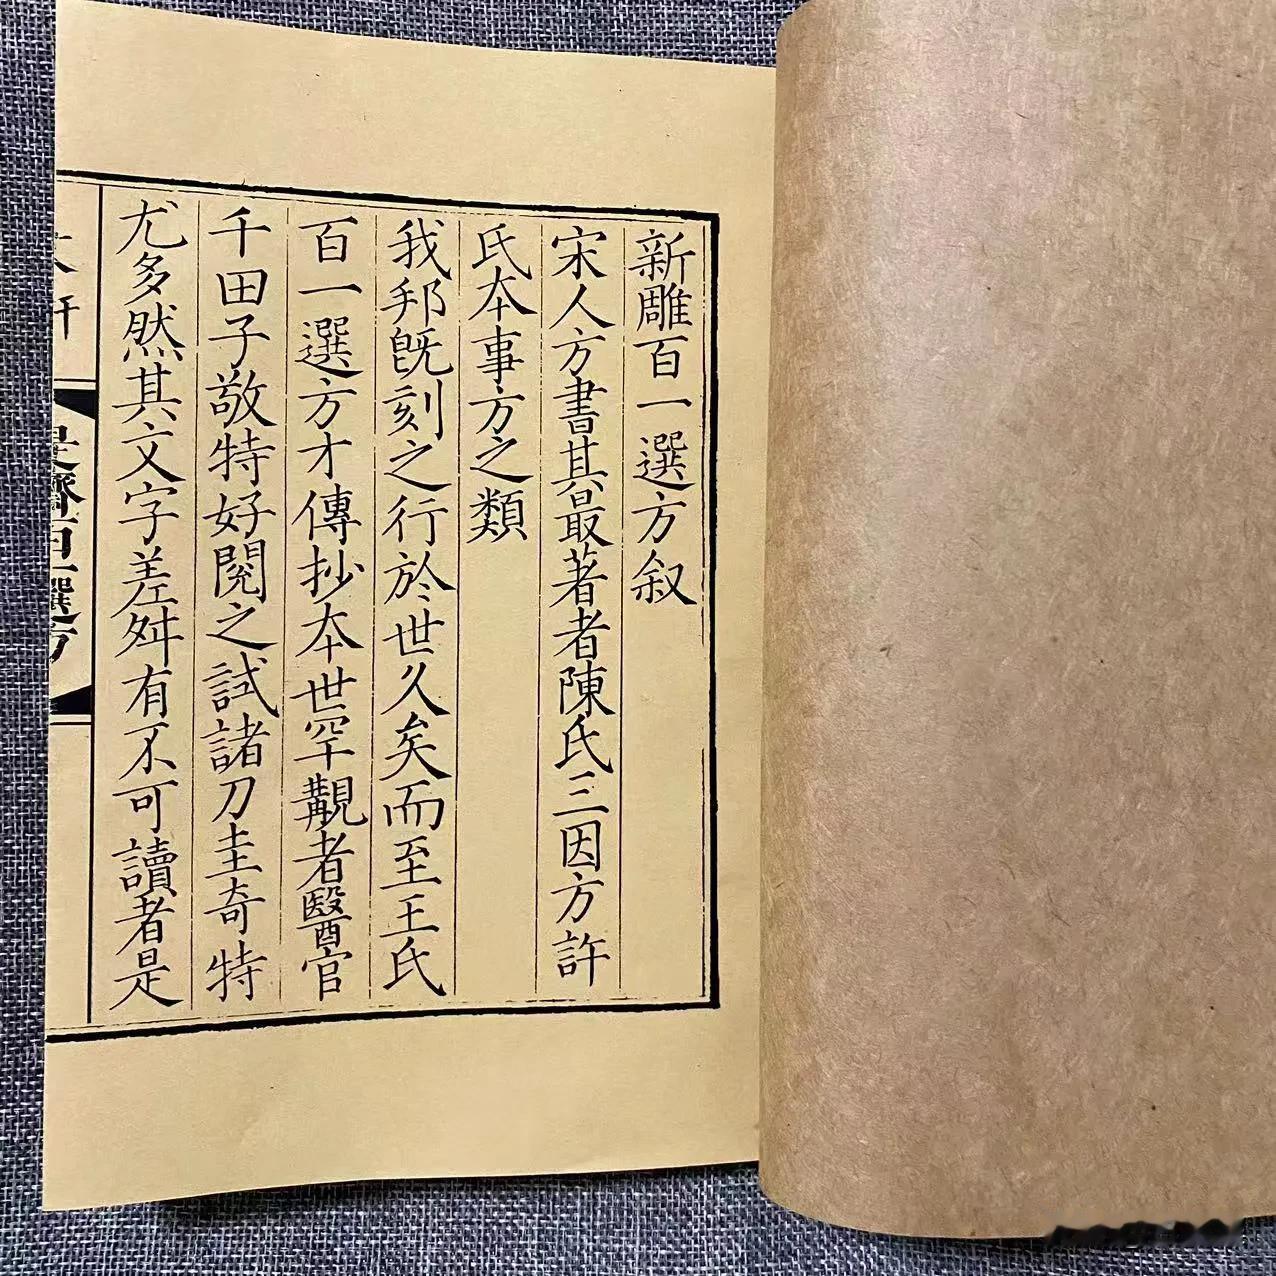 新雕百一選方叙
宋人方書其最著者陳氏三因方許
氏本事方之類
我邦既刻之行於世久矣而至王氏
百一選方才傳抄本世罕覯者醫官
千田子敬特好閱之試諸刀圭奇特
尤多然其文字差舛有不可讀者是
是齋百一選方